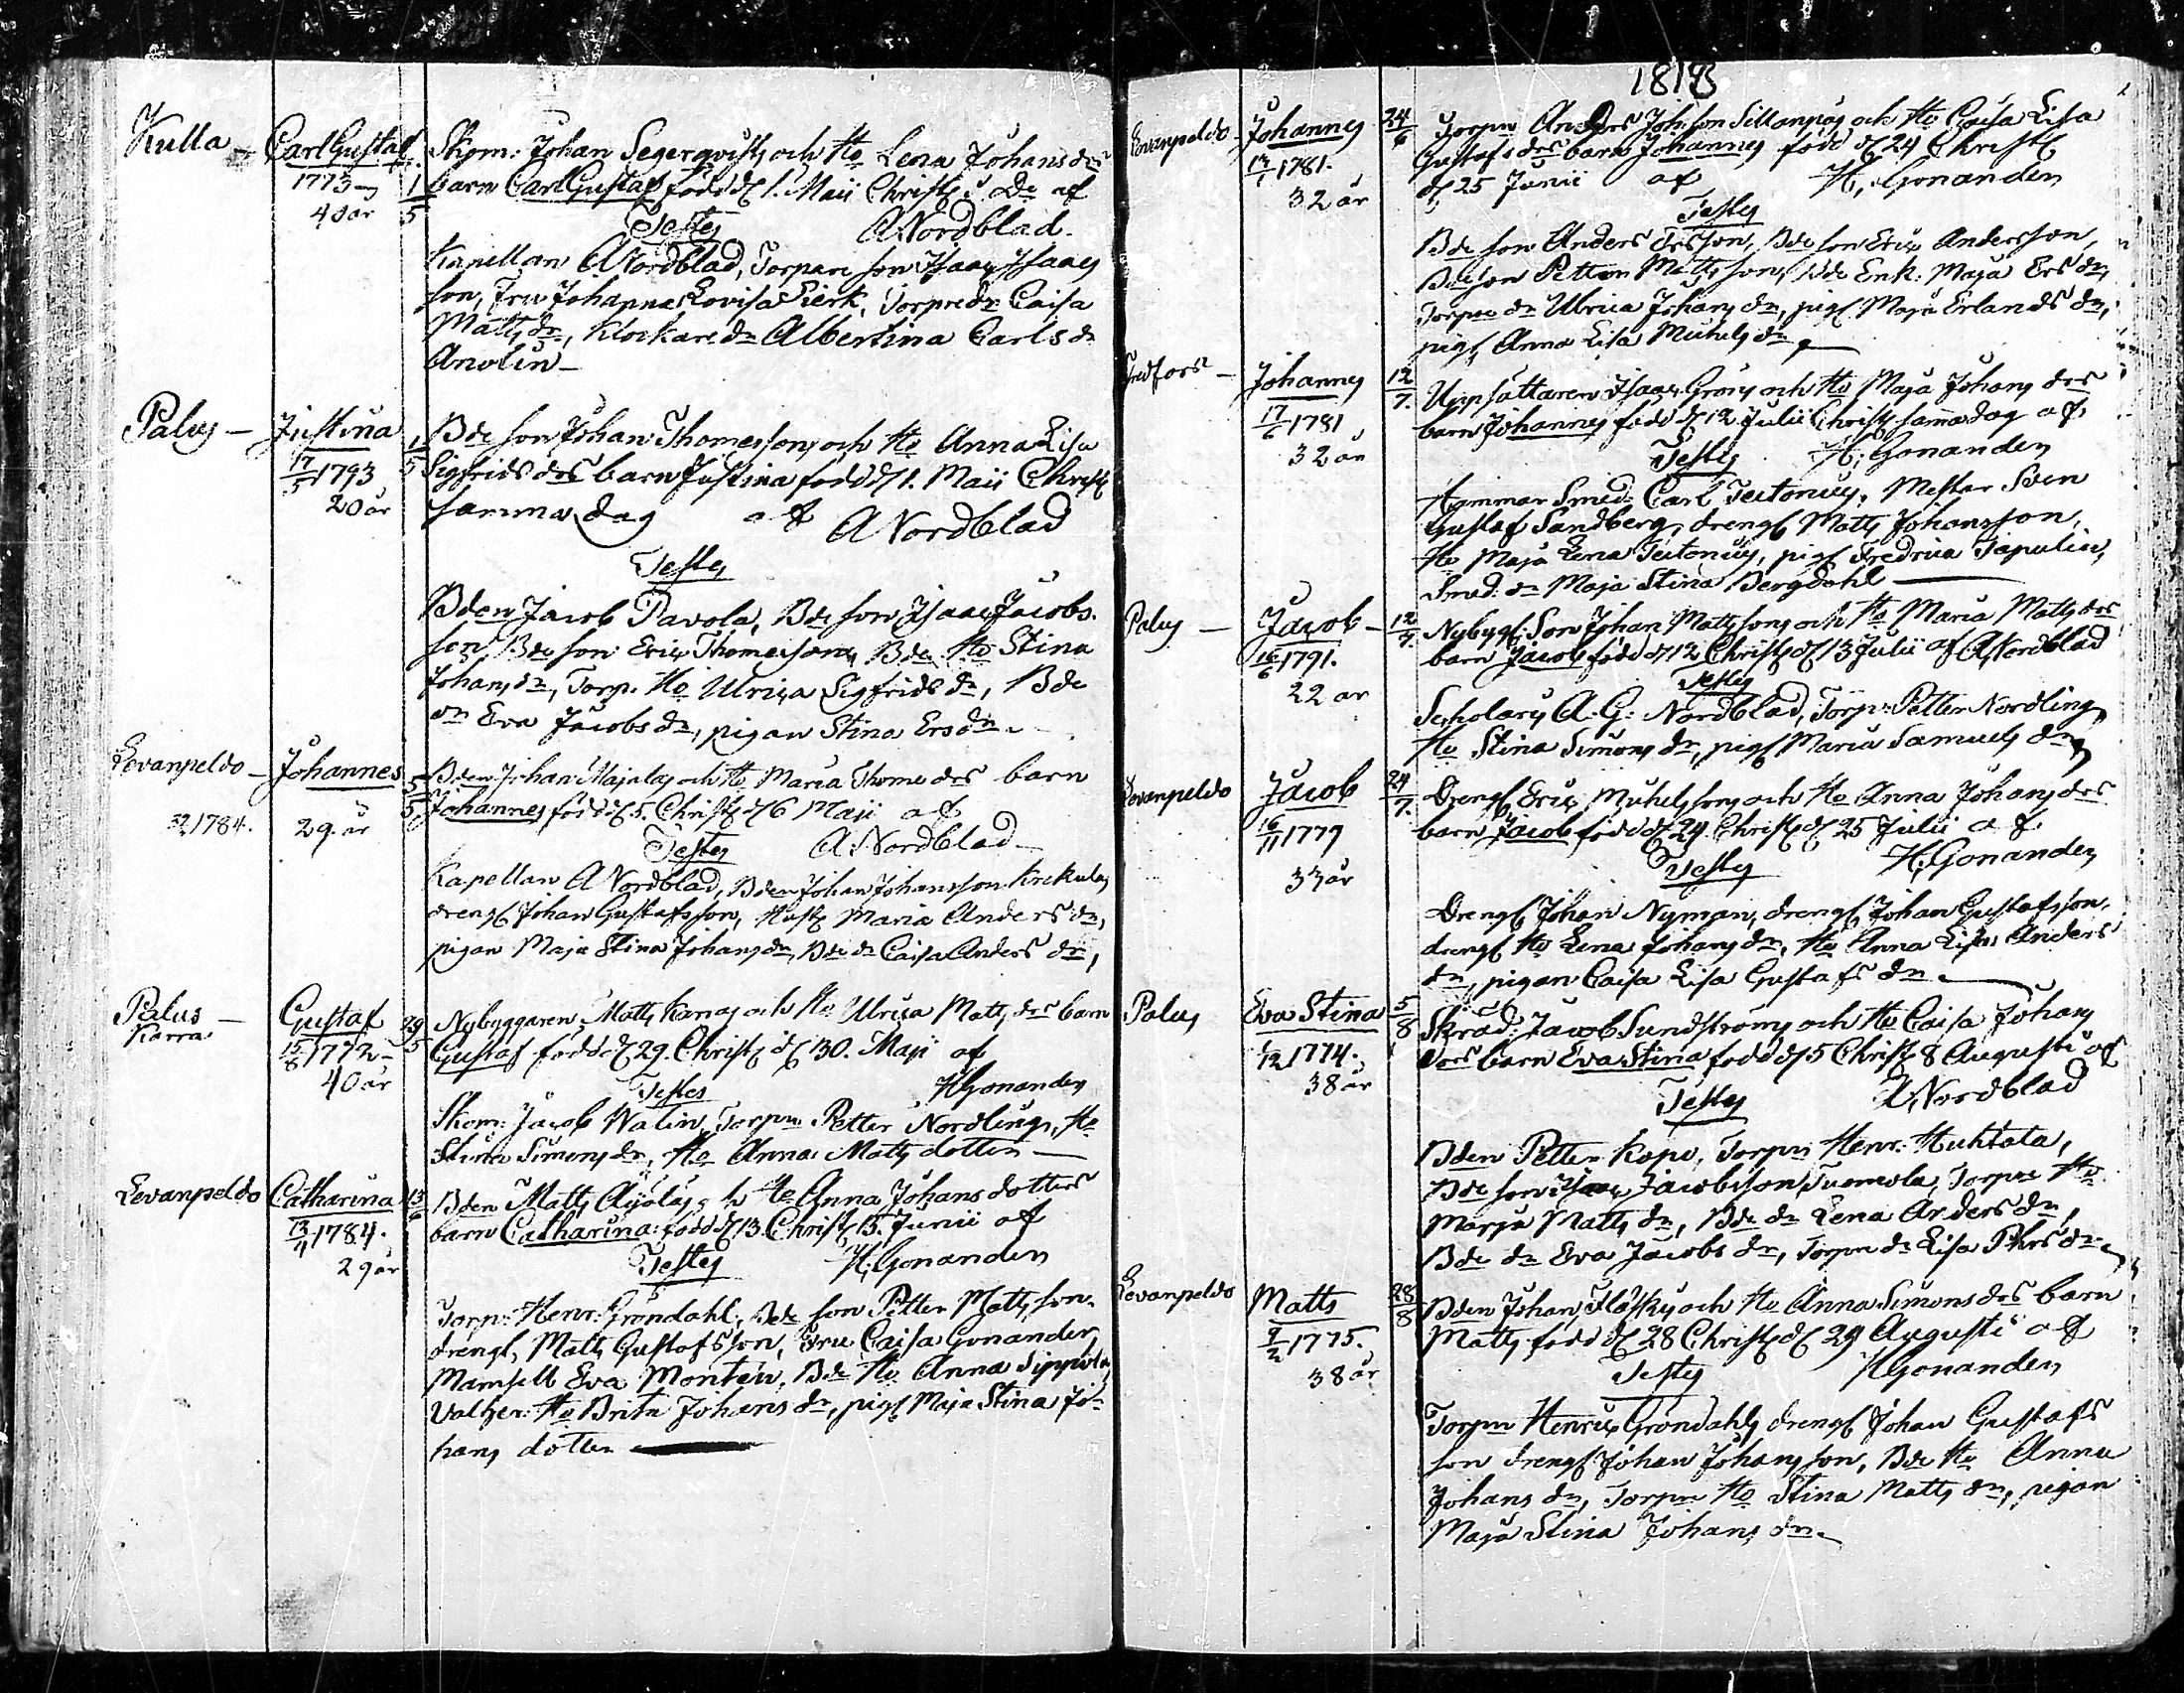 1813
Kulla — Carl Gustaf
1773
40 år
1/5
Skom: Johan Segerqvists och Ho Lena Johans drs
barn Carl Gustaf född d 1. Maii Christ: af
Testes A Nordblad.
Kapellan A Nordblad, Torpare son Isaac Isaacs
son, Fru Johanna Lovisa Pierk, Torpre dr Caisa
Matts dr, Klockare dr Albertina Carls dr
Palus — Justina
17/5 1793
20 år
1/5
Bde son Johan Thomessons och Ho Anna Lisa
Sigfrids drs barn Justina född d 1. Maii Christ
samma dag af A Nordblad
Testes
Bden Jacob Pavola, Bde son Isaac Jacobs
son Bde son Eric Thomesson, Bde Ho Stina
Johans dr, Torp. Ho Ulrica Sigfrids dr, Bde
dr Eva Jacobs dr, pigan Stina Ers dr
Levanpeldo — Johannes
1784. 29 år
5/5
Bden Johan Majalas och Ho Maria Thome drs barn
Johannes född d 5. Christ d 6 Maii af
Testes A Nordblad
Kapellan A Nordblad, Bden Johan Johansson Krekula
drengs Johan Gustafsson, Hust Maria Anders dr,
pigan Maja Stina Johans dr, Bde dr Caisa Anders dr,
Palus — Gustaf
Karra
15/8 1772
40 år
29/5
Nybyggaren Matts Karras och Ho Ulrica Matts drs barn
Gustaf född d 29. Christ d 30. Maji af
Testes H Gonander
Skom: Jacob Walin, Torpn Petter Nordling, Ho
Stina Simons dr, Ho Anna Matts dotter —
Levanpeldo Catharina
13/11 1784.
29 år
13/6
Bden Matts Äijäläs och Ho Anna Johans dotters
barn Catharina född d 13. Christ 15. Junii af
Testes H. Gonander
Torp: Henr: Gröndahl, Bde son Petter Matts son
drengs Matts Gustafsson, Fru Caisa Gonander,
Mamsell Eva Montén, Bde Ho Anna Sippola,
Ho Brita Johans dr, pigs Maja Stina Jo-
hans dotter
Levanpeldo — Johannes
1781.
32 år
24/6
Torpn Anders Johsson Sillanpäs och Ho Caisa Lisa
Gustafs drs barn Johannes född d 24 Christ
d 25 Junii af H. Gonander
Testes
Bde son Anders Ersson, Bde son Eric Andersson,
Bde son Petter Matts son, Bde Enk: Maja Ers dr,
Torpre dr Ulrica Johans dr, pigs Maja Erlands dr,
pigs Anna Lisa Michels dr
Fredfors — Johannes
17/6 1781
32 år
12/7.
Uppsättaren Isaac Gröns och Ho Maja Johans drs
barn Johannes född d 12 Julii Christ samma dag af
Testes H. Gonander
Hammar Smed: Carl Teetonius, Mester Sven
Gustaf Sandberg, drengs Matts Johansson,
Ho Maja Lena Teetonius, pigs Fredrica Tapulin,
Smed: dr Maja Stina Bergdahl
Palus — Jacob
16/6 1791.
22 år
12/7.
Nybygs: Son Johan Mattssons och Ho Maria Matts drs
barn Jacob född d 12 Christ d 13 Julii af A Nordblad
Testes
Scholaris A: G: Nordblad, Torp: Petter Nordling
Ho Stina Simons dr, pigs Maria Samuels dr
Levanpeldo Jacob
16/11 1779
33 år
24/7.
Drengs Eric Michelssons och Ho Anna Johans drs
barn Jacob född d 24. Christ d 25 Julii af
Testes H. Gonander
Drengs Johan Nyman, drengs Johan Gustafsson,
drengs Ho Lena Johans dr, Ho Anna Lisa Anders
dr, pigan Caisa Lisa Gustafs dr
Palus Eva Stina
1774.
38 år
5/8
Skräd: Jacob Sundströms och Ho Caisa Johans
drs barn Eva Stina född d 5 Christ 8 Augusti af
Testes A. Nordblad
Bden Petter Kopo, Torpn Henr: Huhtala,
Bde son Isaac Jacobsson Tuomola, Torpre Ho
Marja Matts dr, Bde dr Lena Anders dr,
Bde dr Eva Jacobs dr, Torpre dr Lisa Phrs dr
Levanpeldo Matts
1775.
38 år
28/8
Bden Johan Fläskys och Ho Anna Simons drs barn
Matts född d 28 Christ d 29 Augusti af
Testes H Gonander
Torpn Henric Gröndahl, drengs Johan Gustafs
son drengs Johan Johansson, Bde Ho Anna
Johans dr, Torpre Ho Stina Matts dr, pigan
Maja Stina Johans dr